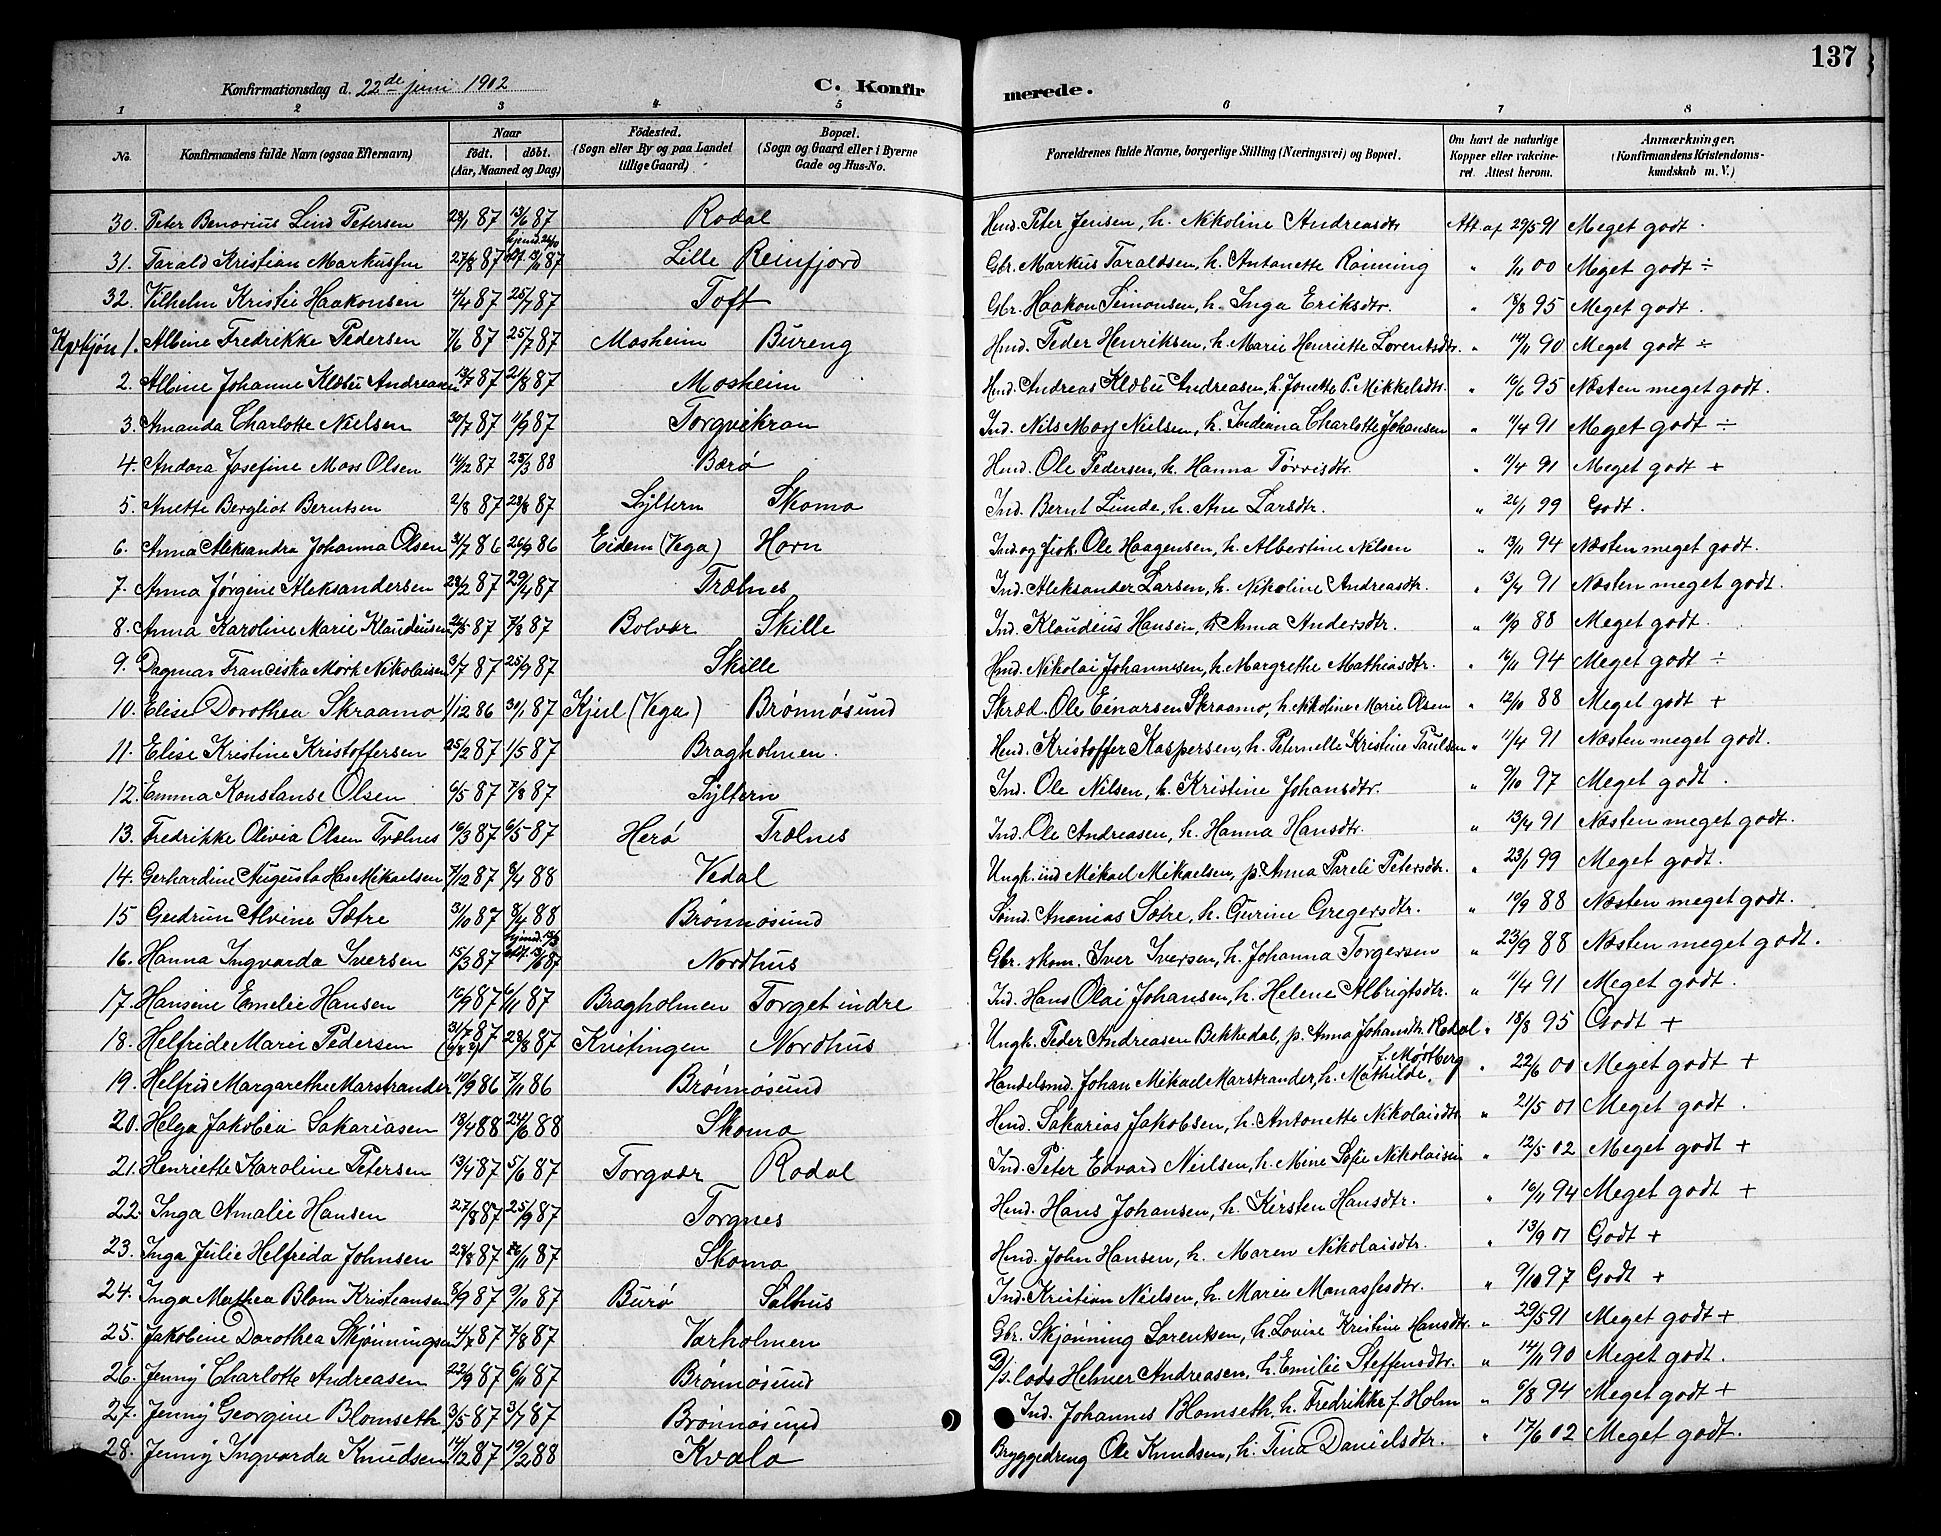 137
Konfirmationsdag d. 22de juni 1902 C. Konfirmerede.
1 2 3 4 5 6 7 8
No. Konfirmandens fulde Navn (ogsaa Efternavn) Naar født. døbt. (Aar, Maaned og Dag) Fødested. (Sogn eller By og paa Landet tillige Gaard) Bopæl. (Sogn og Gaard eller i Byerne Gade og Hus-No. Forældrenes fulde Navne, borgerlige Stilling (Næringsvei) og Bopæl. Om havt de naturlige Kopper eller vakcineret. Attest herom. Anmærkninger. (Konfirmandens Kristendomskundskab m. V.)
30. Peter Benarius Lind Petersen 23/1 87 13/6 87 Rodal Hmd. Peter Jensen, h. Nikoline Andreasdtr Att. af 29/5 91 Meget godt.
31. Tarald Kristian Markussen 27/8 87 87 Lille Reinfjord Gbr. Markus Taraldsen, h. Antonette Rönning " 1/11 00 Meget godt ÷
32. Vilhelm Kristie Haakonsen 4/4 87 25/7 87 Toft Gbr. Haakon Simonsen, h. Inga Eriksdtr. " 18/8 95 Meget godt.
Kvkjøn 1. Albine Fredrikke Pedersen 7/6 87 25/7 87 Mosheim Bureng Hmd. Peder Henriksen, h. Marie Henriette Lorentsdtr. " 14/11 90 Meget godt ÷
2. Albine Johanne Klæbu Andreasen 13/7 87 21/8 87 Mosheim Hmd. Andreas Klæbu Andreasen, h. Jonette P. Mikkelsdtr. " 16/6 95 Næsten meget godt.
3. Amanda Charlotte Nielsen 30/7 87 11/9 87 Torgvikran Ind. Nils Moss Nielsen, h. Indiana Charlotte Johansen " 11/4 91 Meget godt ÷
4. Andora Josefine Moss Olsen 14/2 87 25/3 88 Bærø Hmd. Ole Pedersen, h. Hanna Tørrisdtr. " 11/4 91 Meget godt +
5. Anette Bergliot Berntsen 2/8 87 28/8 87 Syltern Skomo Ind. Bernt Lunde, h. Ane Larsdtr. " 26/1 99 Godt.
6. Anna Aleksandra Johanna Olsen 31/7 86 26/9 86 Eidem (Vega) Horn Ind. og fisk. Ole Haagensen, h. Albertine Nilsen " 13/11 94 Næsten meget godt.
7. Anna Jørgine Aleksandersen 28/2 87 29/4 87 Trælnes Ind. Aleksander Larsen, h. Nikoline Andreasdtr. " 13/4 91 Næsten meget godt.
8. Anna Karoline Marie Klaudiusen 24/5 87 7/8 87 Bolvær Skille Ind. Klaudius Hansen, h. Anna Andersdtr. " 10/9 88 Meget godt.
9. Dagmar Franciska Mørk Nikolaisen 3/7 87 25/9 87 Skille Hmd. Nikolai Johannesen, h. Margrethe Mathiasdtr. " 16/11 94 Meget godt ÷
10. Elise Dorothea Skraamo 1/12 86 30/1 87 Kjul (Vega) Brønnøsund Skræd. Ole Einarsen Skraamo, h. Nikoline Marie Olsen " 12/10 88 Meget godt +
11. Elise Kristine Kristoffersen 25/2 87 1/5 87 Bragholmen. Hmd. Kristoffer Kaspersen, h. Peternelle Kristine Paulsen " 11/4 91 Næsten meget godt.
12. Emma Konstanse Olsen 6/5 87 7/8 87 Syltern Ind. Ole Nilsen, h. Kristine Johansdtr. " 9/10 97 Meget godt.
13. Fredrikke Olivia Olsen Trælnes 16/3 87 6/5 87 Herø Trælnes Ind. Ole Andreasen, h. Hanna Hansdtr. " 13/4 91 Næsten meget godt.
14. Gerhardine Augusta Mikaelsen 7/12 87 8/4 88 Vedal Ungk. ind Mikael Mikaelsen, p. Anna Pareli Petersdtr. " 23/1 99 Meget godt.
15 Gudrun Alvine Sætre 31/10 87 8/4 88 Brønnøsund Sømd. Ananias Sætre, h. Gurine Gregersdtr. " 10/9 88 Næsten meget godt.
16. Hanna Ingvarda Iversen 15/3 87 87 Nordhus Gbr. skom. Iver Iversen, h. Johanna Torgersen " 23/9 88 Næsten meget godt.
17. Hansine Emelie Hansen 10/9 87 6/11 87 Bragholmen Torget indre Ind. Hans Olai Johansen, h. Helene Albrigtsdtr. " 11/4 91 Meget godt.
18. Helfride Marie Pedersen 31/7 87 28/8 87 Kvitingen Nordhus Ungk. Peder Andreasen Bekkedal, p. Anna Johandtr. Rodal " 18/8 95 Godt +
19. Helfrid Margarethe Marstrander 10/9 86 7/11 86 Brønnøsund Handelsmd. Johan Mikael Marstrander, h. Mathilde f. Mørtberg " 22/6 00 Meget godt +
20. Helga Jakobea Sakariasen 13/4 88 24/6 88 Skomo Hmd. Sakarias Jakobsen, h. Antonette Nikolaisdtr. " 21/5 01 Meget godt.
21. Henriette Karoline Petersen 13/4 87 5/6 87 Torgvær Rodal Ind. Peter Edvard Nielsen, h. Mine Sofie Nikolaisen " 12/5 02 Meget godt +
22. Inga Amalie Hansen 27/8 87 25/9 87 Torgnes Hmd. Hans Johansen, h. Kirsten Hansdtr. " 16/11 94 Meget godt +
23. Inga Julie Helfrida Johnsen 28/8 87 87 Skomo Hmd. John Hansen, h. Maren Nikolaisdtr. " 13/9 01 Godt +
24. Inga Mathea Blom Kristiansen 8/9 87 9/10 87 Burø Salhus Ind. Kristian Nielsen, h. Marie Manassesdtr. " 9/10 97 Godt +
25. Jakobine Dorothea Skjønningsen 4/7 87 7/8 87 Varholmen Gbr. Skjønning Lorentsen, h. Lovise Kristine Hansdtr. " 29/5 91 Meget godt +
26. Jenny Charlotte Andreasen 22/9 87 6/11 87 Brønnøsund D/s. lods Helmer Andreasen, h. Emilie Steffensdtr. " 14/11 90 Meget godt.
27. Jenny Georgine Blomseth 3/5 87 3/7 87 Brønnøsund Ind. Johannes Blomseth, h. Fredrikke f. Holm " 6/8 94 Meget godt +
28. Jenny Ingvarda Knudsen 14/12 87 19/2 88 Kvalø Bryggedreng Ole Knudsen, h. Tina Danielsdtr. " 17/6 02 Meget godt.